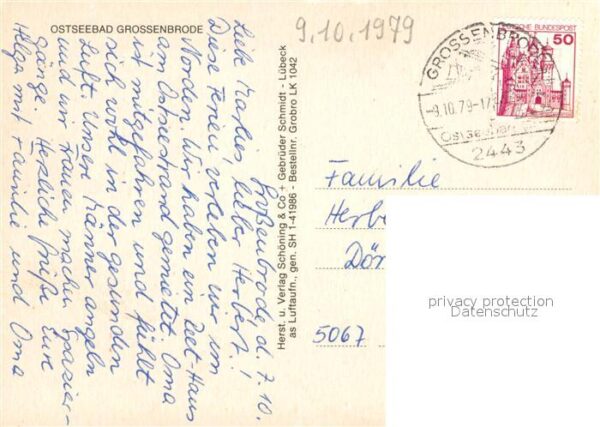 OSTSEEBAD GROSSENBRODE
9.10.1979
Großenbrode, d. 7.10.
Liebe Marlies, lieber Herbert!
Diese Ferien verleben wir im
Norden. Wir haben ein Zelt-Haus
am Ostseestrand gemietet. Oma
ist mitgefahren und fühlt
sich wohl in der gesunden
Luft. Unsere Männer angeln
und wir Frauen machen Spazier-
gänge. Herzliche Grüße Eure
Helga mit Familie und Oma
Herst. u. Verlag Schöning & Co + Gebrüder Schmidt - Lübeck
as Luftaufn., gen. SH 1-41986 - Bestellnr. Grobro LK 1042
GROSSENBRODE
9.10.79-17
2443
DEUTSCHE BUNDESPOST
50
Familie
Herbe
Dör
5067
privacy protection
Datenschutz